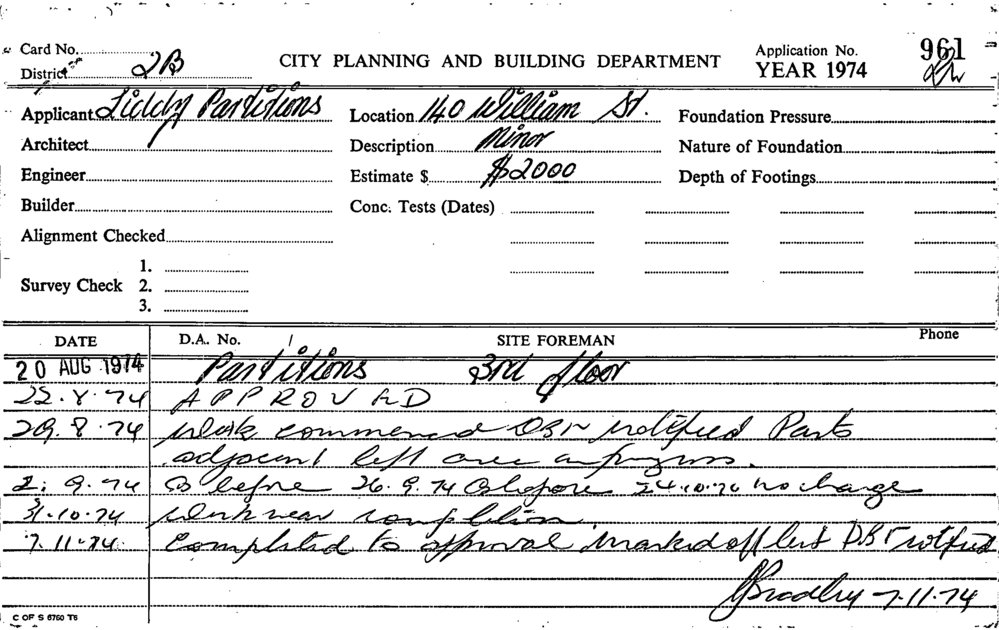 Card No.
District 2B
CITY PLANNING AND BUILDING DEPARTMENT
Application No. 961
YEAR 1974
Applicant Liddy Partitions
Location 140 William St.
Foundation Pressure
Architect
Description Minor
Nature of Foundation
Engineer
Estimate $ $2000
Depth of Footings
Builder
Conc. Tests (Dates)
Alignment Checked
Survey Check 1.
2.
3.
DATE D.A. No. / SITE FOREMAN Phone
20 AUG 1974 Partitions 3rd floor
22.8.74 APPROVED
29.8.74 Work commenced notified Parts
adjacent left area in progress.
2.9.74 As before 26.9.74 As before 24.10.74 no change
31.10.74 Work near completion.
7.11.74 Completed to approval marked off list notified
JBradley 7.11.74
C OF S 6750 T6